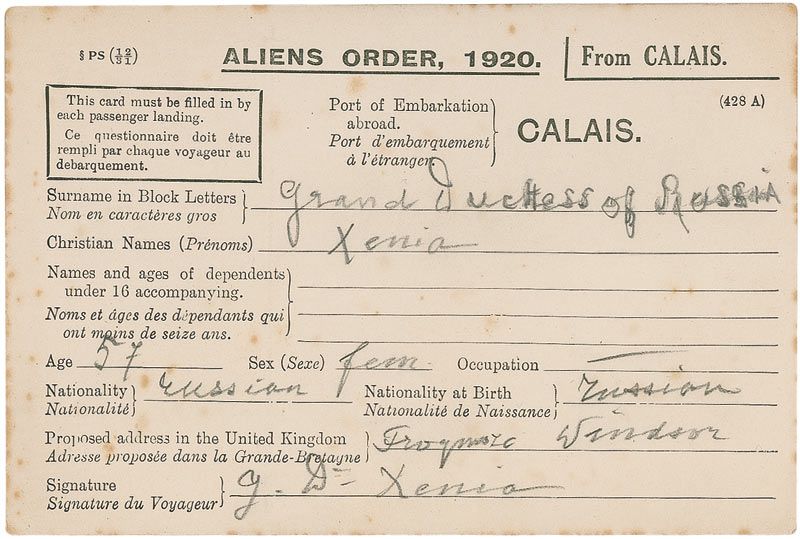 § PS (12/31)
ALIENS ORDER, 1920.
From CALAIS.
(428 A)
This card must be filled in by
each passenger landing.
Ce questionnaire doit être
rempli par chaque voyageur au
debarquement.
Port of Embarkation
abroad.
Port d'embarquement
à l'étranger.
CALAIS.
Surname in Block Letters
Nom en caractères gros
Grand Duchess of RussiA
Christian Names (Prénoms) Xenia
Names and ages of dependents
under 16 accompanying.
Noms et âges des dépendants qui
ont moins de seize ans.
Age 57 Sex (Sexe) fem Occupation —
Nationality
Nationalité
russian
Nationality at Birth
Nationalité de Naissance
russian
Proposed address in the United Kingdom
Adresse proposée dans la Grande-Bretagne
Frogmore Windsor
Signature
Signature du Voyageur
G. Dss Xenia